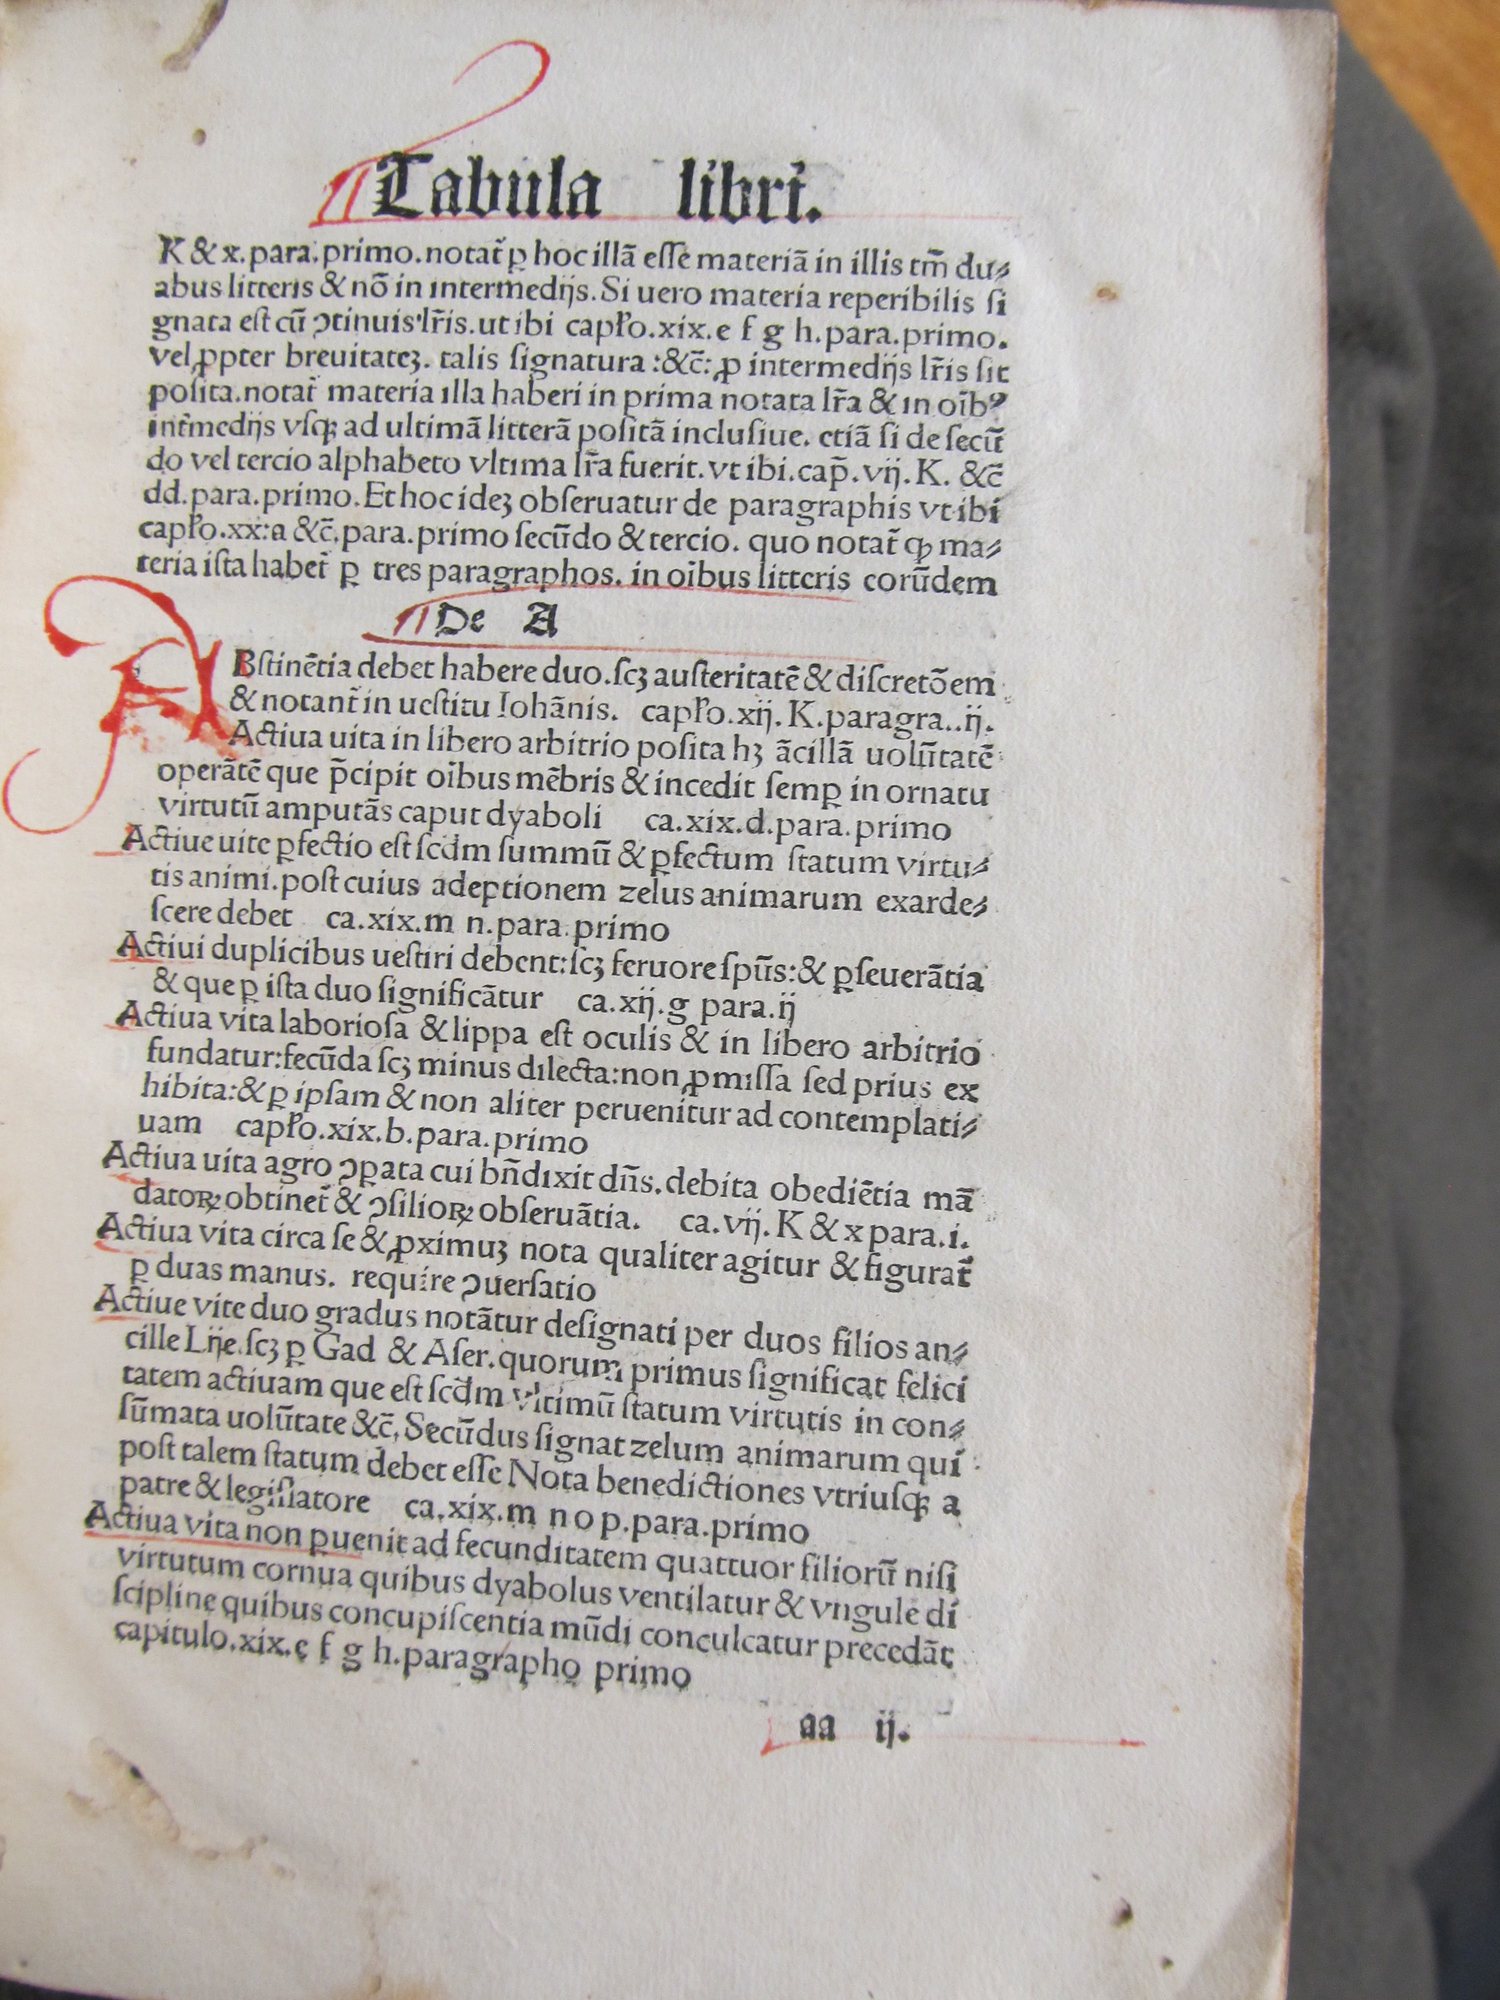 Tabula libri.
K & x.para.primo.notat̃ ꝑ hoc illã eſſe materiã in illis tm̃ du⸗
abus litteris & nõ in intermedijs. Si uero materia reperibilis ſi
gnata eſt cũ ɔtinuis lr̃is.ut ibi capłо.xix.e f g h.para.primo.
vel ꝓpter breuitateꝫ. talis ſignatura :&c̃: ꝓ intermedijs lr̃is ſit
poſita.notat̃ materia illa haberi in prima notata lr̃a & in oĩbꝰ
int̃medijs vſqꝫ ad ultimã litterã poſitã incluſiue. etiã ſi de ſecũ
do vel tercio alphabeto vltima lr̃a fuerit. vt ibi.cap̃. vij. K. &c̃
dd.para.primo. Et hoc ideꝫ obſeruatur de paragraphis vt ibi
capłо.xx:a &c̃.para.primo ſecũdo & tercio. quo notat̃ ꝙ ma⸗
teria iſta habet̃ ꝑ tres paragraphos. in oĩbus litteris eorũdem
De A
ABſtinẽtia debet habere duo.ſcꝫ auſteritatẽ & diſcretõem
& notant̃ in ueſtitu Iohãnis. capłо.xij. K.paragra..ij.
Actiua uita in libero arbitrio poſita hꝫ ãcillã uolũtatẽ
operãtẽ que p̃cipit oĩbus mẽbris & incedit ſemꝑ in ornatu
virtutũ amputãs caput dyaboli ca.xix.d.para.primo
Actiue uite ꝑfectio eſt ſcd̃m ſummũ & ꝑfectum ſtatum virtu⸗
tis animi.poſt cuius adeptionem zelus animarum exarde⸗
ſcere debet ca.xix.m n.para.primo
Actiui duplicibus ueſtiri debent:ſcꝫ feruore ſpũs:& ꝑſeuerãtia
& que ꝑ iſta duo ſignificãtur ca.xij.g para.ij
Actiua vita laborioſa & lippa eſt oculis & in libero arbitrio
fundatur:fecũda ſcꝫ minus dilecta:non ꝓmiſſa ſed prius ex
hibita:& ꝑ ipſam & non aliter peruenitur ad contemplati⸗
uam capłо.xix.b.para.primo
Actiua uita agro ɔꝑata cui bñdixit dñs.debita obediẽtia mã
datoꝝ obtinet̃ & ɔſilioꝝ obſeruãtia. ca.vij. K & x para.i.
Actiua vita circa ſe & ꝓximuꝫ nota qualiter agitur & figurat̃
ꝑ duas manus. require ɔuerſatio
Actiue vite duo gradus notãtur deſignati per duos filios an⸗
cille Lije.ſcꝫ ꝑ Gad & Aſer.quorum primus ſignificat felici
tatem actiuam que eſt ſcd̃m vltimũ ſtatum virtutis in con⸗
ſũmata uolũtate &c̃. Secũdus ſignat zelum animarum qui
poſt talem ſtatum debet eſſe Nota benedictiones vtriuſqꝫ a
patre & legiſlatore ca.xix.m n o p.para.primo
Actiua vita non ꝑuenit ad fecunditatem quattuor filiorũ niſi
virtutum cornua quibus dyabolus ventilatur & vngule di
ſcipline quibus concupiſcentia mũdi conculcatur precedãt
capitulo.xix.e f g h.paragrapho primo
aa ij.